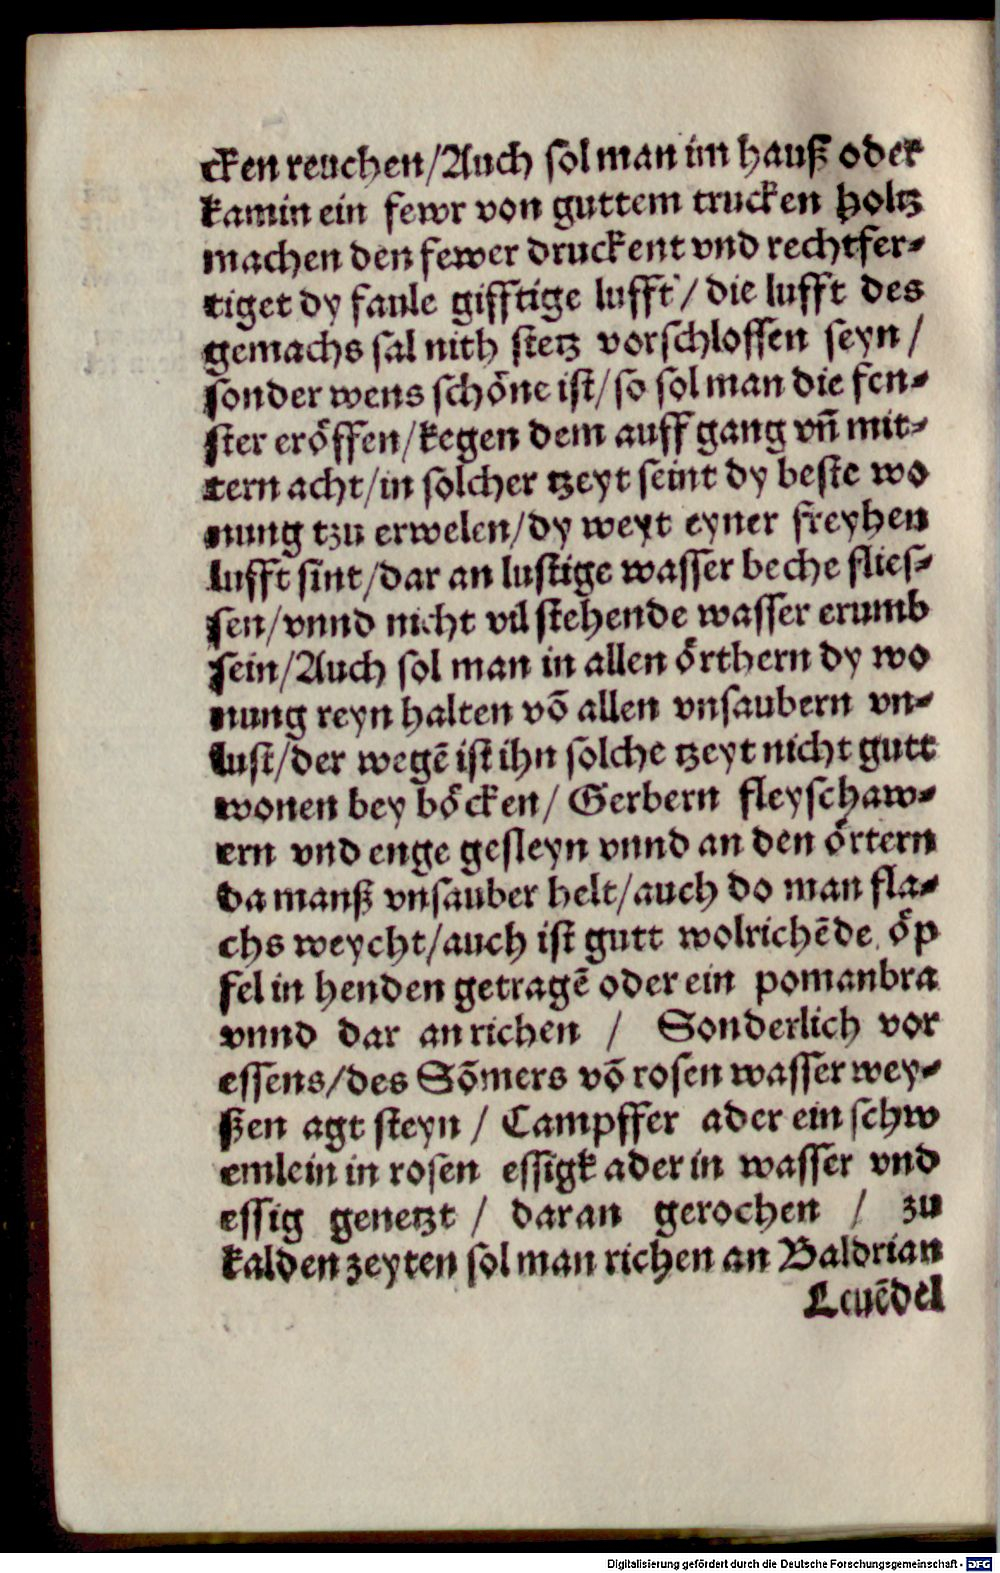 cken reuchen/Auch sol man im hauß oder
kamin ein fewr von guttem trucken holtz
machen den fewer druckent vnd rechtfer-
tiget dy faule gifftige lufft/ die lufft des
gemachs sal nith stetz vorschlossen seyn/
sonder wens schöne ist/so sol man die fen-
ster eröffen/kegen dem auff gang vñ mit-
tern acht/in solcher tzeyt seint dy beste wo
nung tzu erwelen/dy weyt eyner freyhen
lufft sint/dar an lustige wasser beche flies-
sen/vnnd nicht vil stehende wasser erumb
sein/Auch sol man in allen örthern dy wo
nung reyn halten võ allen vnsaubern vn-
lust/der wegẽ ist ihn solche tzeyt nicht gutt
wonen bey böcken/ Gerbern fleyschaw-
ern vnd enge gesleyn vnnd an den örtern
da manß vnsauber helt/auch do man fla-
chs weycht/auch ist gutt wolrichẽde öp
fel in henden getragẽ oder ein pomanbra
vnnd dar an richen / Sonderlich vor
essens/des Sõmers võ rosen wasser wey-
ßen agt steyn / Campffer ader ein schw
emlein in rosen essigk ader in wasser vnd
essig genetzt / daran gerochen / zu
kalden zeyten sol man richen an Baldrian
Leuẽdel
Digitalisierung gefördert durch die Deutsche Forschungsgemeinschaft - DFG